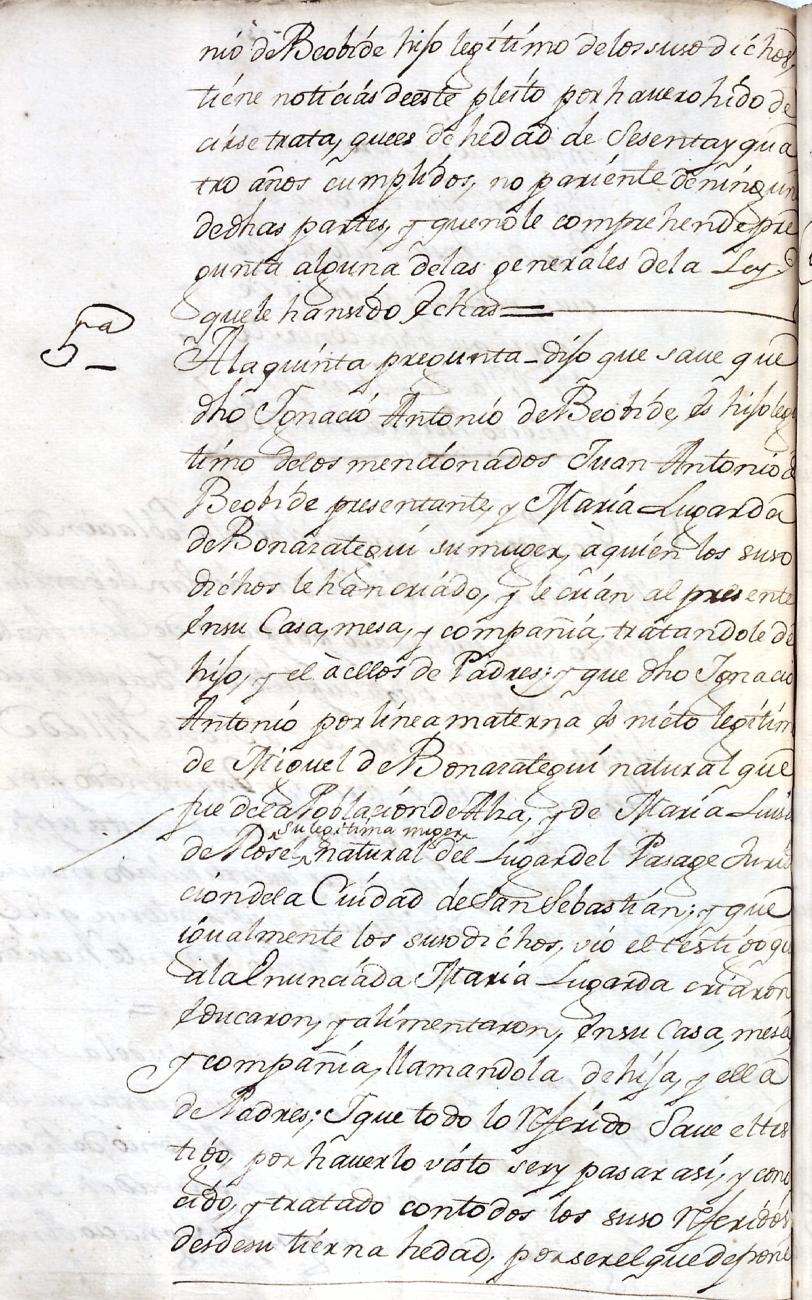 nio de Beobide hijo legitimo de los suso dichos,
tiene noticias de este pleito por haver ohido de
cirse trata, que es de hedad de sesenta y qua
tro años cumplidos, no pariente de ningun
de dhas partes, y que no le comprehende pre
gunta alguna de las generales de la Ley
que le han sido Echas
5ra
A la quinta pregunta dijo que save que
dho Ignacio Antonio de Beobide, es hijo legi
timo de los mencionados Juan Antonio de
Beobide presentante, y Maria Lugarda
de Bonazategui su muger, à quien los suso
dichos le han criado, y le crian al presente
En su Casa, mesa, y compañia, tratandole de
hijo, y el à ellos de Padres; y que dho Ignacio
Antonio por linea materna es nieto legitim
de Miguel de Bonazategui natural que
fue de la Poblacion de Alza, y de Maria Luisa
su legitima muger
de Rosel natural del Lugar del Pasage Juris
cion de la Ciudad de San Sebastian; y que
igualmente los suso dichos, vió el testigo qu
a la Enunciada Maria Lugarda criaron
Educaron, y alimentaron, En su Casa, mesa
y compañia, llamandola de hija, y ella
de Padres; I que todo lo Referido Save el tes
tigo, por haverlo visto ser y pasar asi, y cono
cido, y tratado con todos los suso Referidos
desde su tierna hedad, por ser el que depone